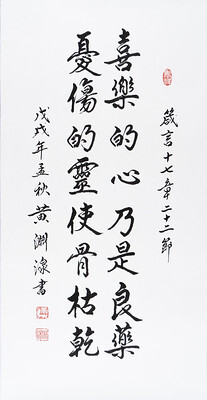 箴言十七章二十二節
喜樂的心乃是良藥
憂傷的靈使骨枯乾
戊戌年孟秋黃淵溱書